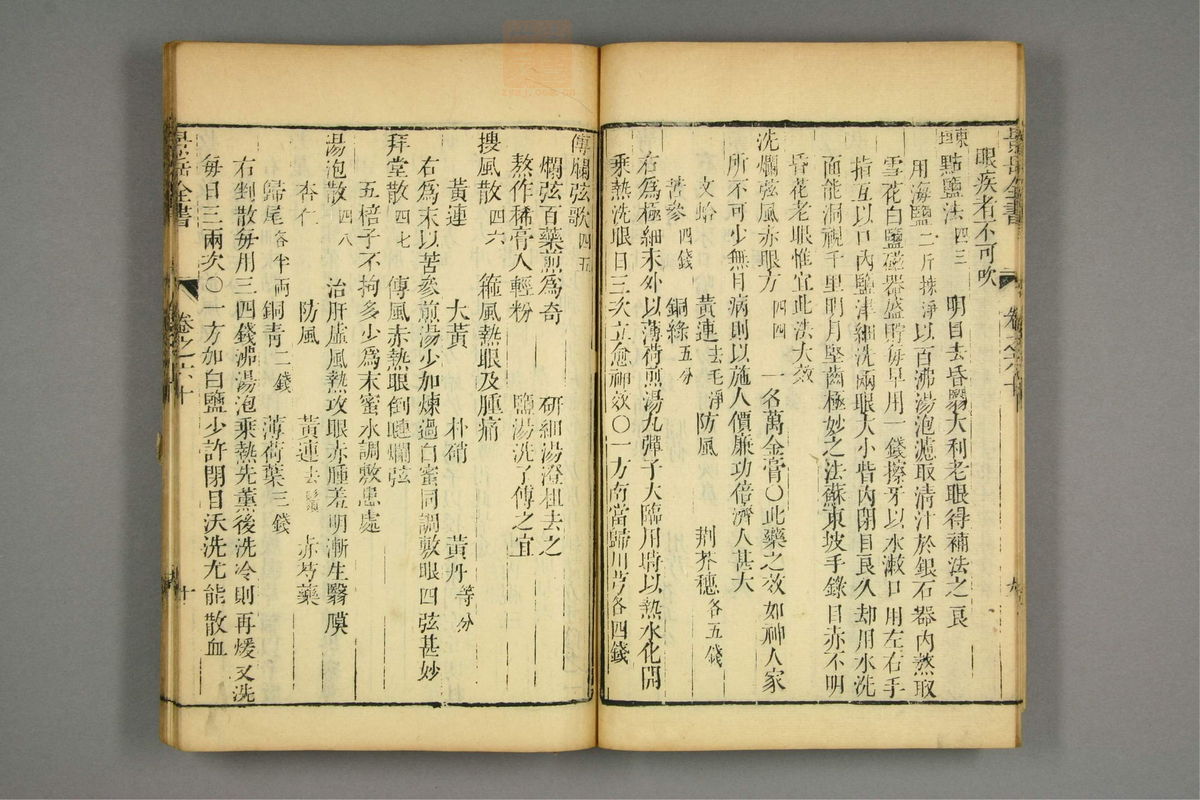 景岳全書
卷之六十
九
眼疾者不可吹
東垣點鹽法 四三 明目去昏翳大利老眼得補法之良
用海鹽 二斤揀淨 以百沸湯泡濾取清汁於銀石器內熬取
雪花白鹽磁器盛貯每早用一錢擦牙以水漱口用左右手
指互以口內鹽津細洗兩眼大小眥內閉目良久却用水洗
面能洞視千里明月堅齒極妙之法蘇東坡手錄目赤不明
昏花老眼惟宜此法大效
洗爛弦風赤眼方 四四 一名萬金膏〇此藥之效如神人家
所不可少無目病則以施人價廉功倍濟人甚大
文蛤 黃連 去毛淨 防風 荆芥穗 各五錢
苦參 四錢 銅綠 五分
右為極細末外以薄荷煎湯丸彈子大臨用時以熱水化開
乘熱洗眼日三次立愈神效〇一方有當歸川芎各四錢
傅爛弦歌 四五
爛弦百藥煎為奇 研細湯澄柤去之
熬作稀膏入輕粉 鹽湯洗了傅之宜
搜風散 四六 箍風熱眼及腫痛
黃連 大黃 朴硝 黃丹 等分
右為末以苦參煎湯少加煉過白蜜同調敷眼四弦甚妙
拜堂散 四七 傅風赤熱眼倒睫爛弦
五棓子不拘多少為末蜜水調敷患處
湯泡散 四八 治肝虛風熱攻眼赤腫羞明漸生瞖膜
杏仁 防風 黃連 去鬚 赤芍藥
歸尾 各半兩 銅青 二錢 薄荷葉 三錢
右剉散每用三四錢沸湯泡乘熱先薰後洗冷則再煖又洗
每日三兩次〇一方加白鹽少許閉目沃洗尤能散血
景岳全書
卷之六十
十